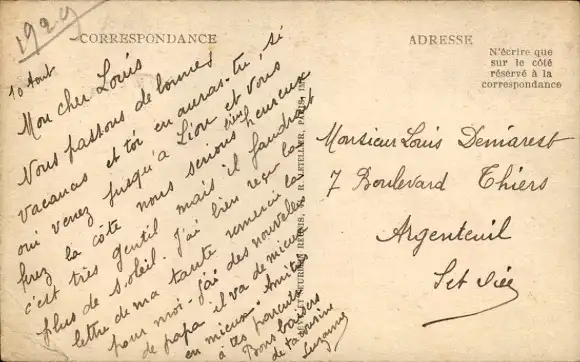 1929
CORRESPONDANCE
10 Aout
Mon cher Louis
Nous passons de bonnes
vacances et toi en auras-tu, si
oui venez jusqu'a Lion et vous
ferez la côte nous serions bien heureux
c'est très gentil mais il faudrait
plus de soleil. J'ai bien reçu la
lettre de ma tante remercie la
pour moi - J'ai des nouvelles
de papa il va de mieux
en mieux. Amities
à tes parents
Bons baisers
de ta cousine
Suzanne
LETELLIER, PARIS, IMP.
ADRESSE
N'écrire que
sur le côté
réservé à la
correspondance
Monsieur Louis Demarest
7 Boulevard Thiers
Argenteuil
Set Oise